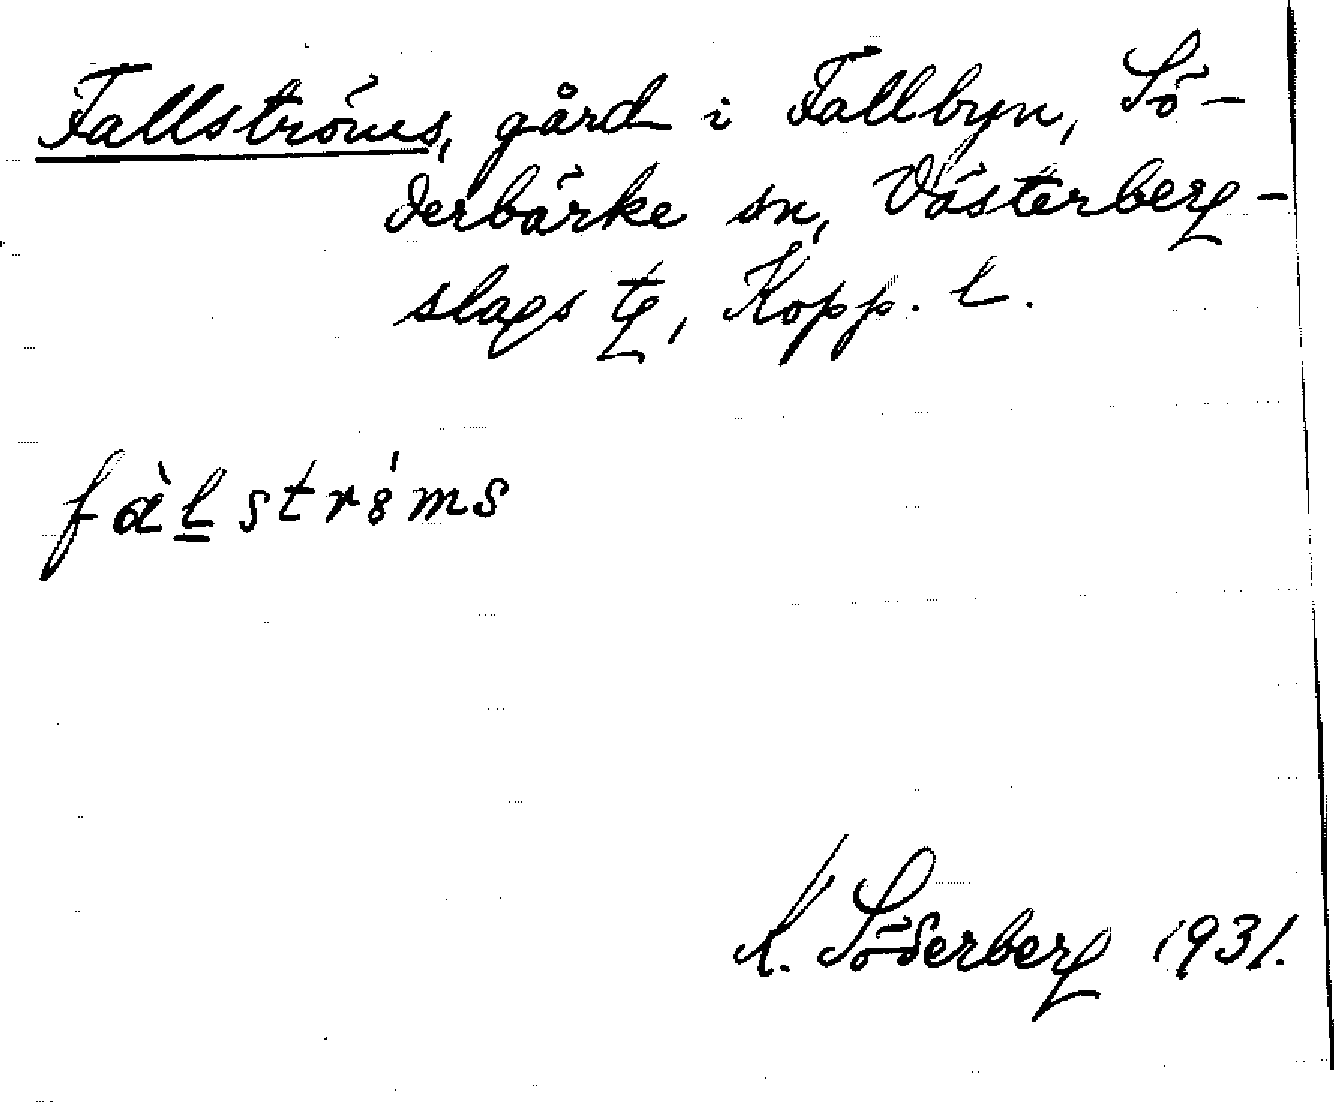 Fallströms, gård i Fallbyn, Sö-
derbärke sn, Västerberg-
slags tg, Kopp. l.
fàl̲strö́ms
K. Söderberg 1931.